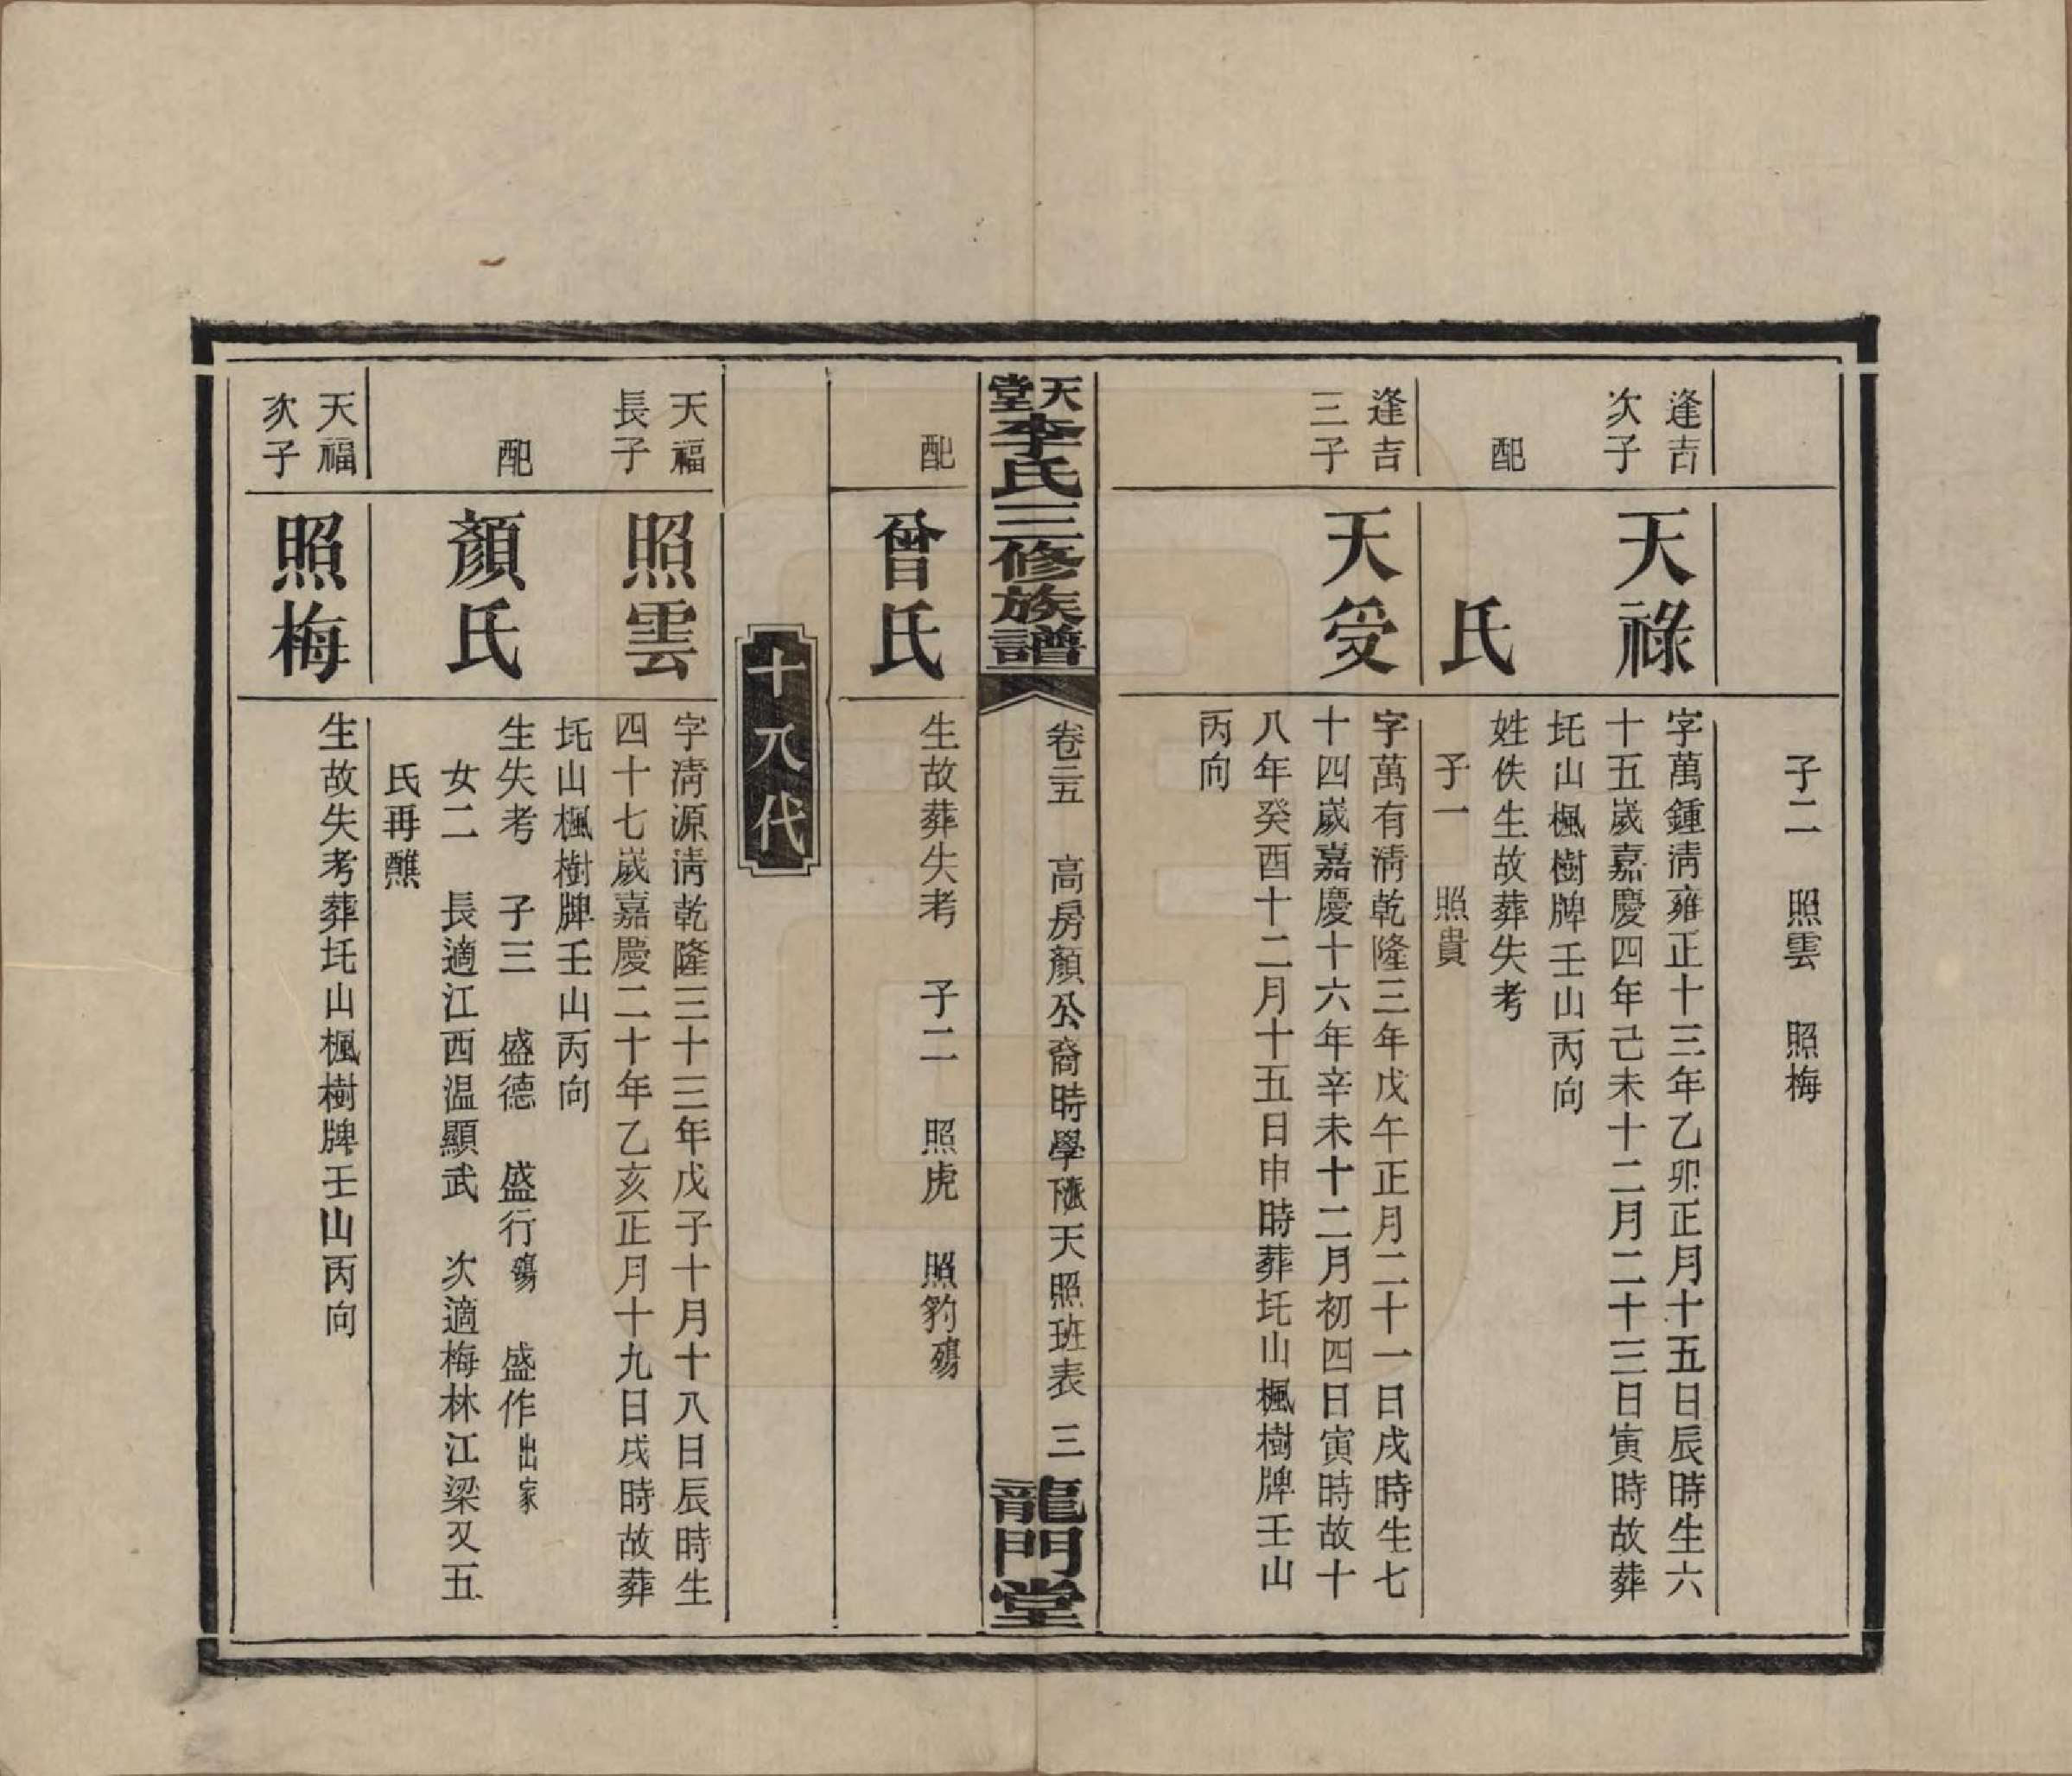 子二　照雲　照梅
逢吉
次子
天祿
字萬鍾清雍正十三年乙卯正月十五日辰時生六
十五歲嘉慶四年己未十二月二十三日寅時故葬
圫山楓樹牌壬山丙向
配
氏
姓佚生故葬失考
子一　照貴
逢吉
三子
天受
字萬有清乾隆三年戊午正月二十一日戌時生七
十四歲嘉慶十六年辛未十二月初四日寅時故十
八年癸酉十二月十五日申時葬圫山楓樹牌壬山
丙向
天堂李氏三修族譜
卷二五　高房顏公裔時學　天照班表　三
龍門堂
配
曾氏
生故葬失考　子二　照虎　照豹殤
十八代
天福
長子
照雲
字清源清乾隆三十三年戊子十月十八日辰時生
四十七歲嘉慶二十年乙亥正月十九日戌時故葬
圫山楓樹牌壬山丙向
配
顏氏
生失考　子三　盛德　盛行殤　盛作出家
女二　長適江西温顯武　次適梅林江梁又五
氏再醮
天福
次子
照梅
生故失考葬圫山楓樹牌壬山丙向